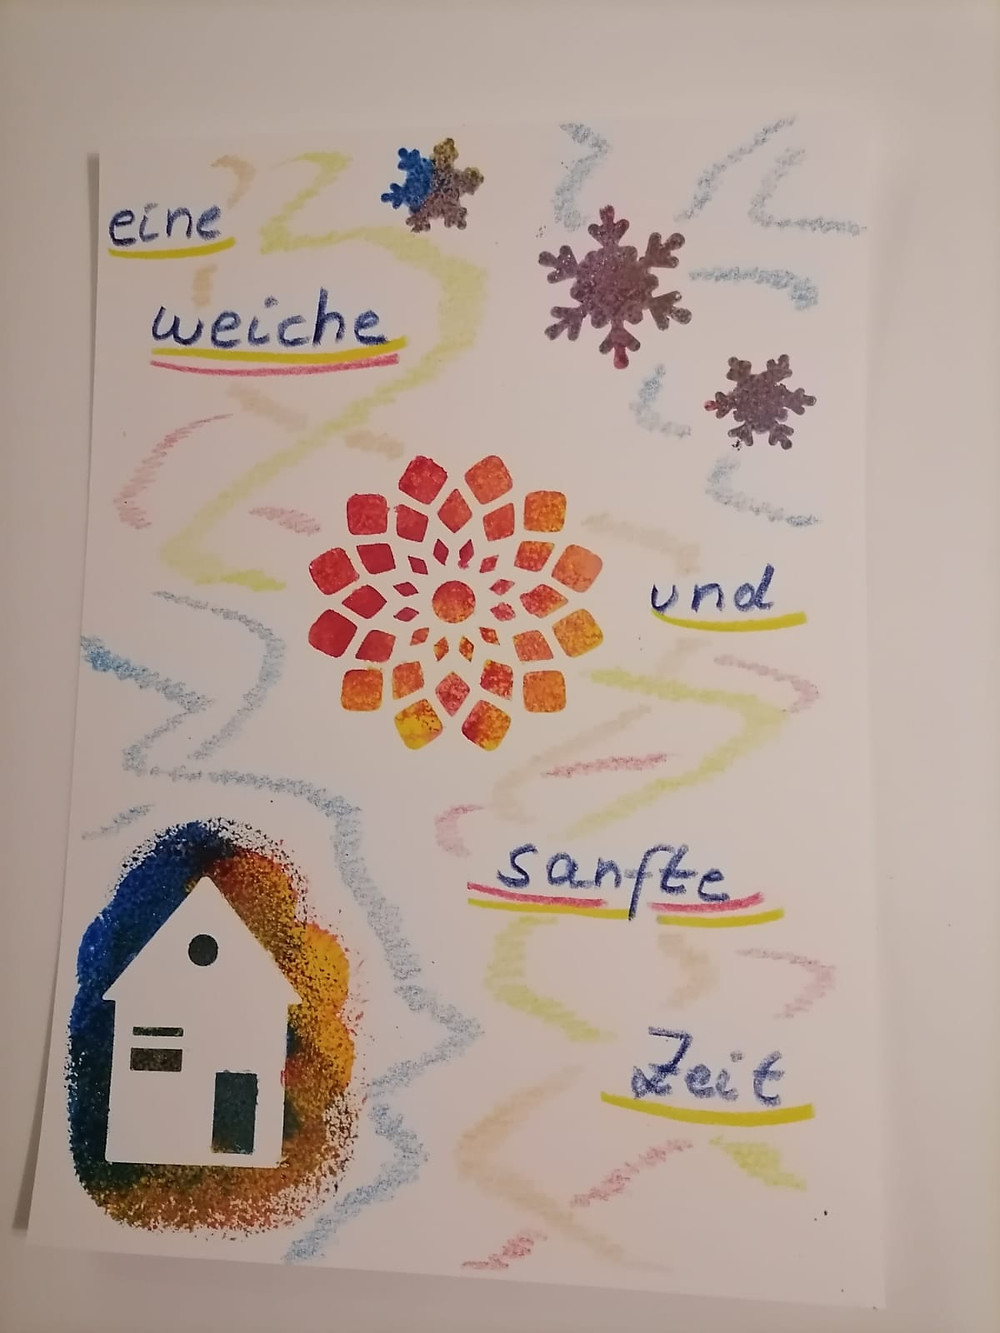 eine
weiche
und
sanfte
Zeit